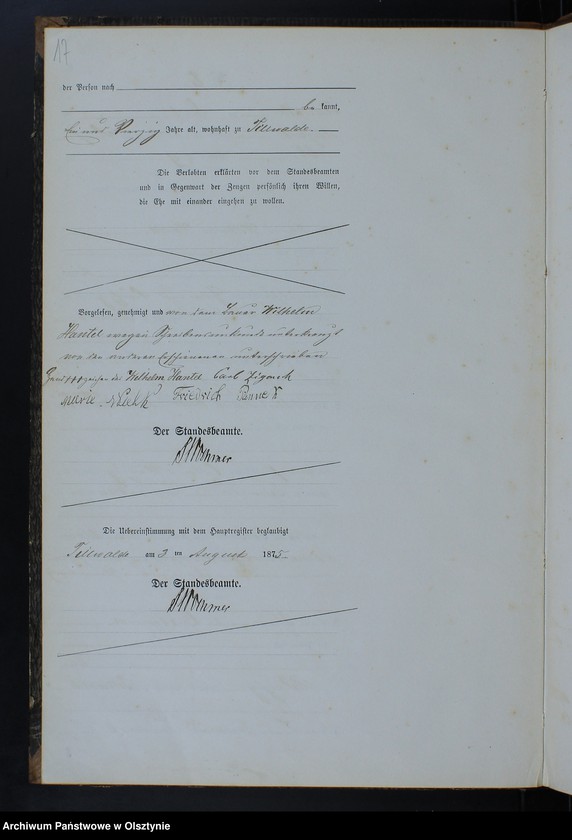 17
der Person nach
be kannt,
ein und Vierzig Jahre alt, wohnhaft zu Tillwalde.
Die Verlobten erklärten vor dem Standesbeamten
und in Gegenwart der Zeugen persönlich ihren Willen,
die Ehe mit einander eingehen zu wollen.
Vorgelesen, genehmigt und von dem Wilhelm
Hantel wegen Schreibensunkunde unterkreuzt
von den anderen Erschienenen unterschrieben
Handzeichen des Wilhelm Hantel Carl
Marie Friedrich
Der Standesbeamte.
Die Uebereinstimmung mit dem Hauptregister beglaubigt
Tillwalde am 3 ten August 1875.
Der Standesbeamte.
Archiwum Państwowe w Olsztynie